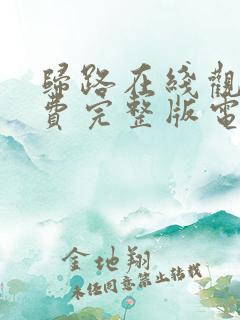 歸路在綫觀
費完整版電
金地翔
未经同意禁止转载